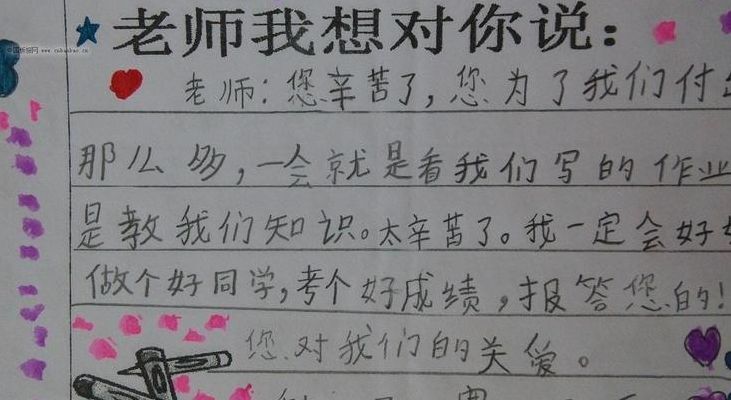 老师我想对你说：
老师：您辛苦了，您为了我们付出
那么多，一会就是看我们写的作业
是教我们知识。太辛苦了。我一定会好好
做个好同学，考个好成绩，报答您的！
您对我们的关爱。